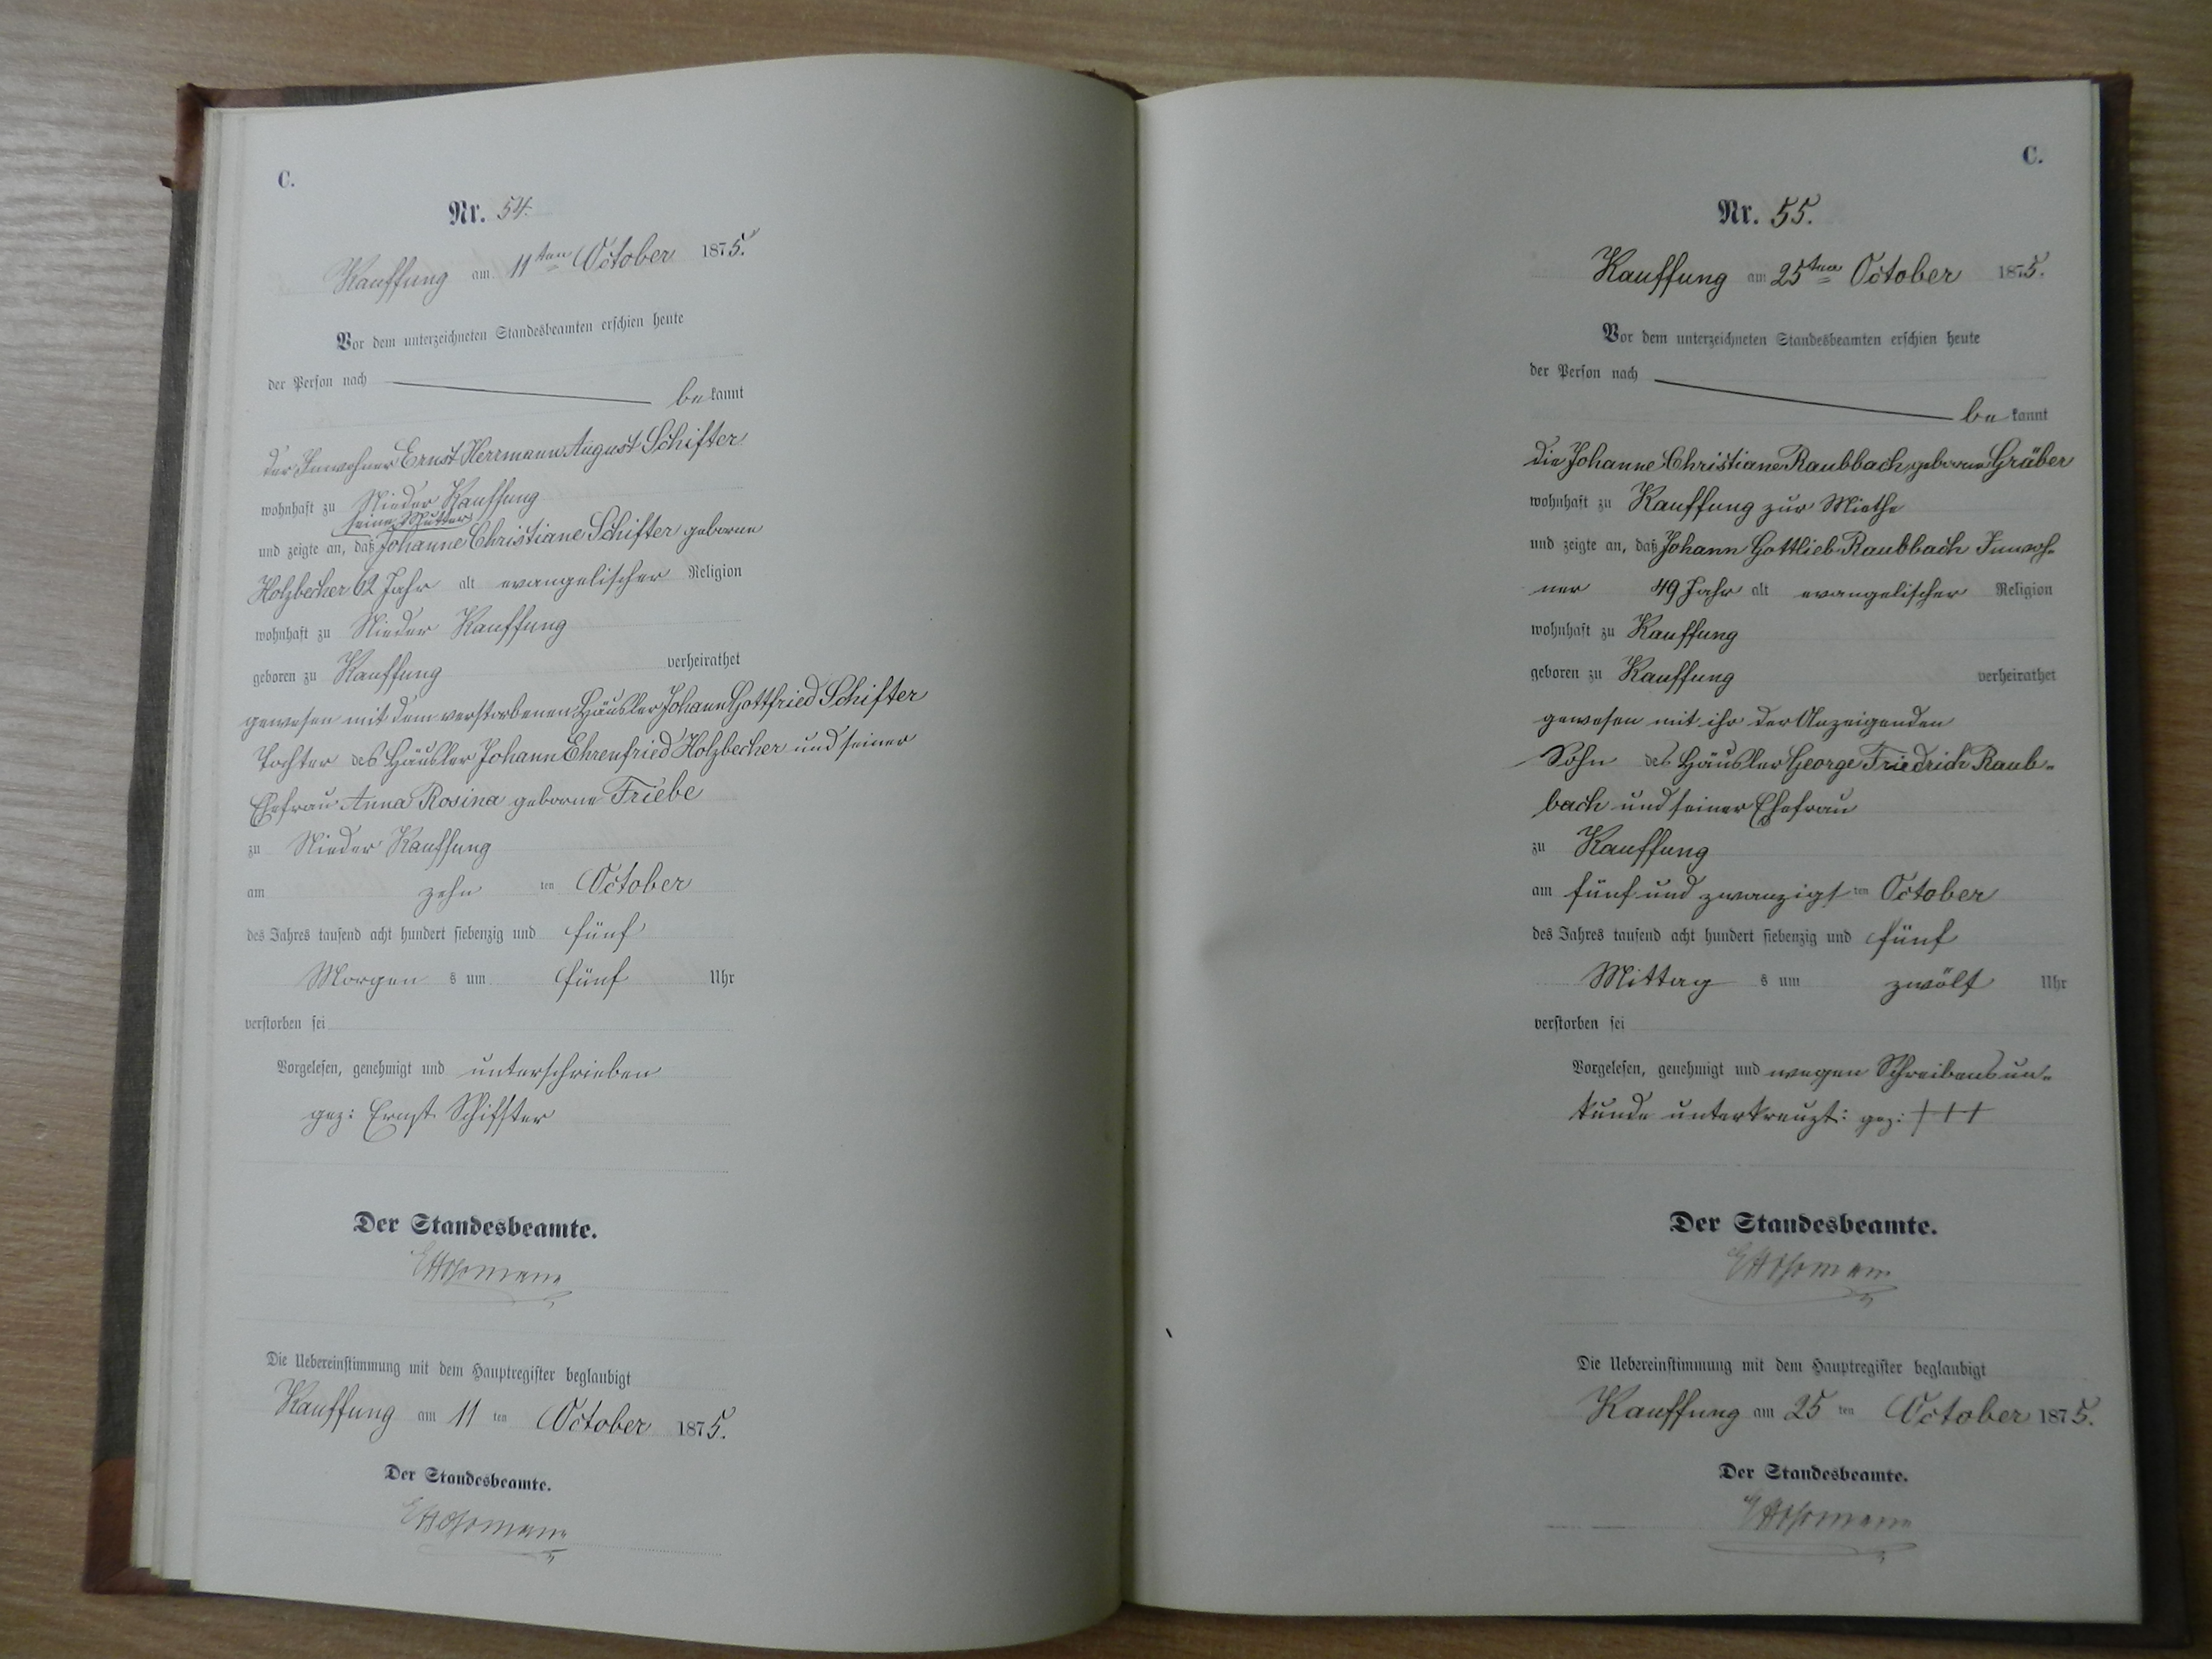 C.
Nr. 54.
Kauffung am 11ten October 1875.
Vor dem unterzeichneten Standesbeamten erschien heute
der Person nach
bekannt
der Inwohner Ernst Herrmann August Schifter
wohnhaft zu Nieder Kauffung
seine Mutter
und zeigte an, daß Johanne Christiane Schifter geborne
Holzbecher 62 Jahr alt evangelischer Religion
wohnhaft zu Nieder Kauffung
geboren zu Kauffung verheirathet
gewesen mit dem verstorbenen Häusler Johann Gottfried Schifter
Tochter des Häusler Johann Ehrenfried Holzbecher und seiner
Ehefrau Anna Rosina geborne Friebe
zu Nieder Kauffung
am zehn ten October
des Jahres tausend acht hundert siebenzig und fünf
Morgen s um fünf Uhr
verstorben sei
Vorgelesen, genehmigt und unterschrieben
gez: Ernst Schiffter
Der Standesbeamte.
Die Uebereinstimmung mit dem Hauptregister beglaubigt
Kauffung am 11 ten October 1875.
Der Standesbeamte.
C.
Nr. 55.
Kauffung am 25ten October 1875.
Vor dem unterzeichneten Standesbeamten erschien heute
der Person nach
bekannt
die Johanne Christiane Raubbach geborne Gräber
wohnhaft zu Kauffung zur Miethe
und zeigte an, daß Johann Gottlieb Raubbach Inwoh-
ner 49 Jahr alt evangelischer Religion
wohnhaft zu Kauffung
geboren zu Kauffung verheirathet
gewesen mit ihr der Anzeigenden
Sohn des Häusler George Friedrich Raub-
bach und seiner Ehefrau
zu Kauffung
am fünf und zwanzigst ten October
des Jahres tausend acht hundert siebenzig und fünf
Mittag s um zwölf Uhr
verstorben sei
Vorgelesen, genehmigt und wegen Schreibensun-
kunde unterkreuzt: gez: +++
Der Standesbeamte.
Die Uebereinstimmung mit dem Hauptregister beglaubigt
Kauffung am 25 ten October 1875.
Der Standesbeamte.